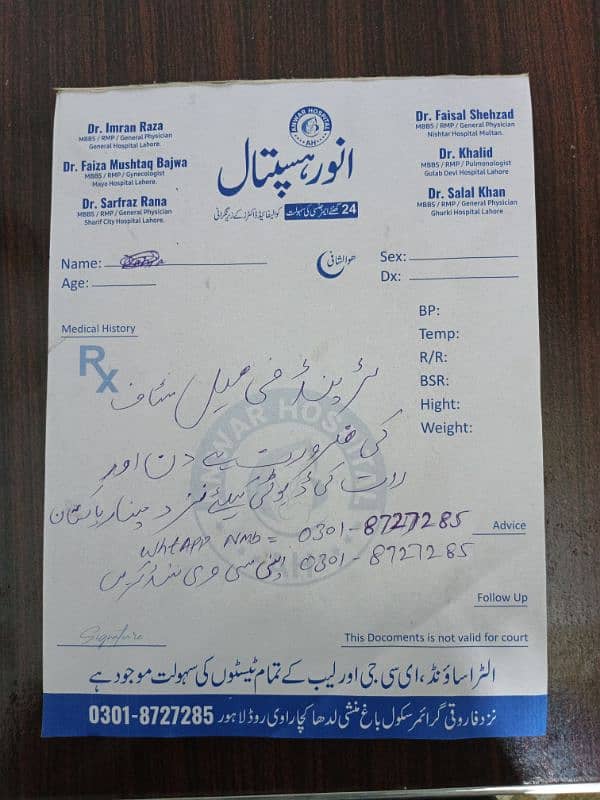 ANWAR HOSPITAL
AH
انور ہسپتال
24 گھنٹے ایمرجنسی کی سہولت کوالیفائیڈ ڈاکٹرز کے زیرنگرانی
Dr. Imran Raza
MBBS / RMP / General Physician
General Hospital Lahore.
Dr. Faiza Mushtaq Bajwa
MBBS / RMP / Gynecologist
Mayo Hospital Lahore.
Dr. Sarfraz Rana
MBBS / RMP / General Physician
Sharif City Hospital Lahore.
Dr. Faisal Shehzad
MBBS / RMP / General Physician
Nishtar Hospital Multan.
Dr. Khalid
MBBS / RMP / Pulmonologist
Gulab Devi Hospital Lahore
Dr. Salal Khan
MBBS / RMP / General Physician
Ghurki Hospital Lahore
Name:
Age:
ھوالشافی
Sex:
Dx:
Medical History
Rx
BP:
Temp:
R/R:
BSR:
Hight:
Weight:
ٹرینڈ فی میل سٹاف
کی ضرورت ہے دن اور
رات کی ڈیوٹی کیلئے نزد مینار پاکستان
0301-8727285
WhtAPP Nmb = 0301-8727285
اپنی سی وی سنڈ کریں
Advice
Follow Up
ANWAR HOSPITAL
Signture
This Docoments is not valid for court
الٹراساؤنڈ، ای سی جی اور لیب کے تمام ٹیسٹوں کی سہولت موجود ہے
نزد فاروقی گرائمر سکول باغ منشی لدھا کچا راوی روڈ لاہور 0301-8727285